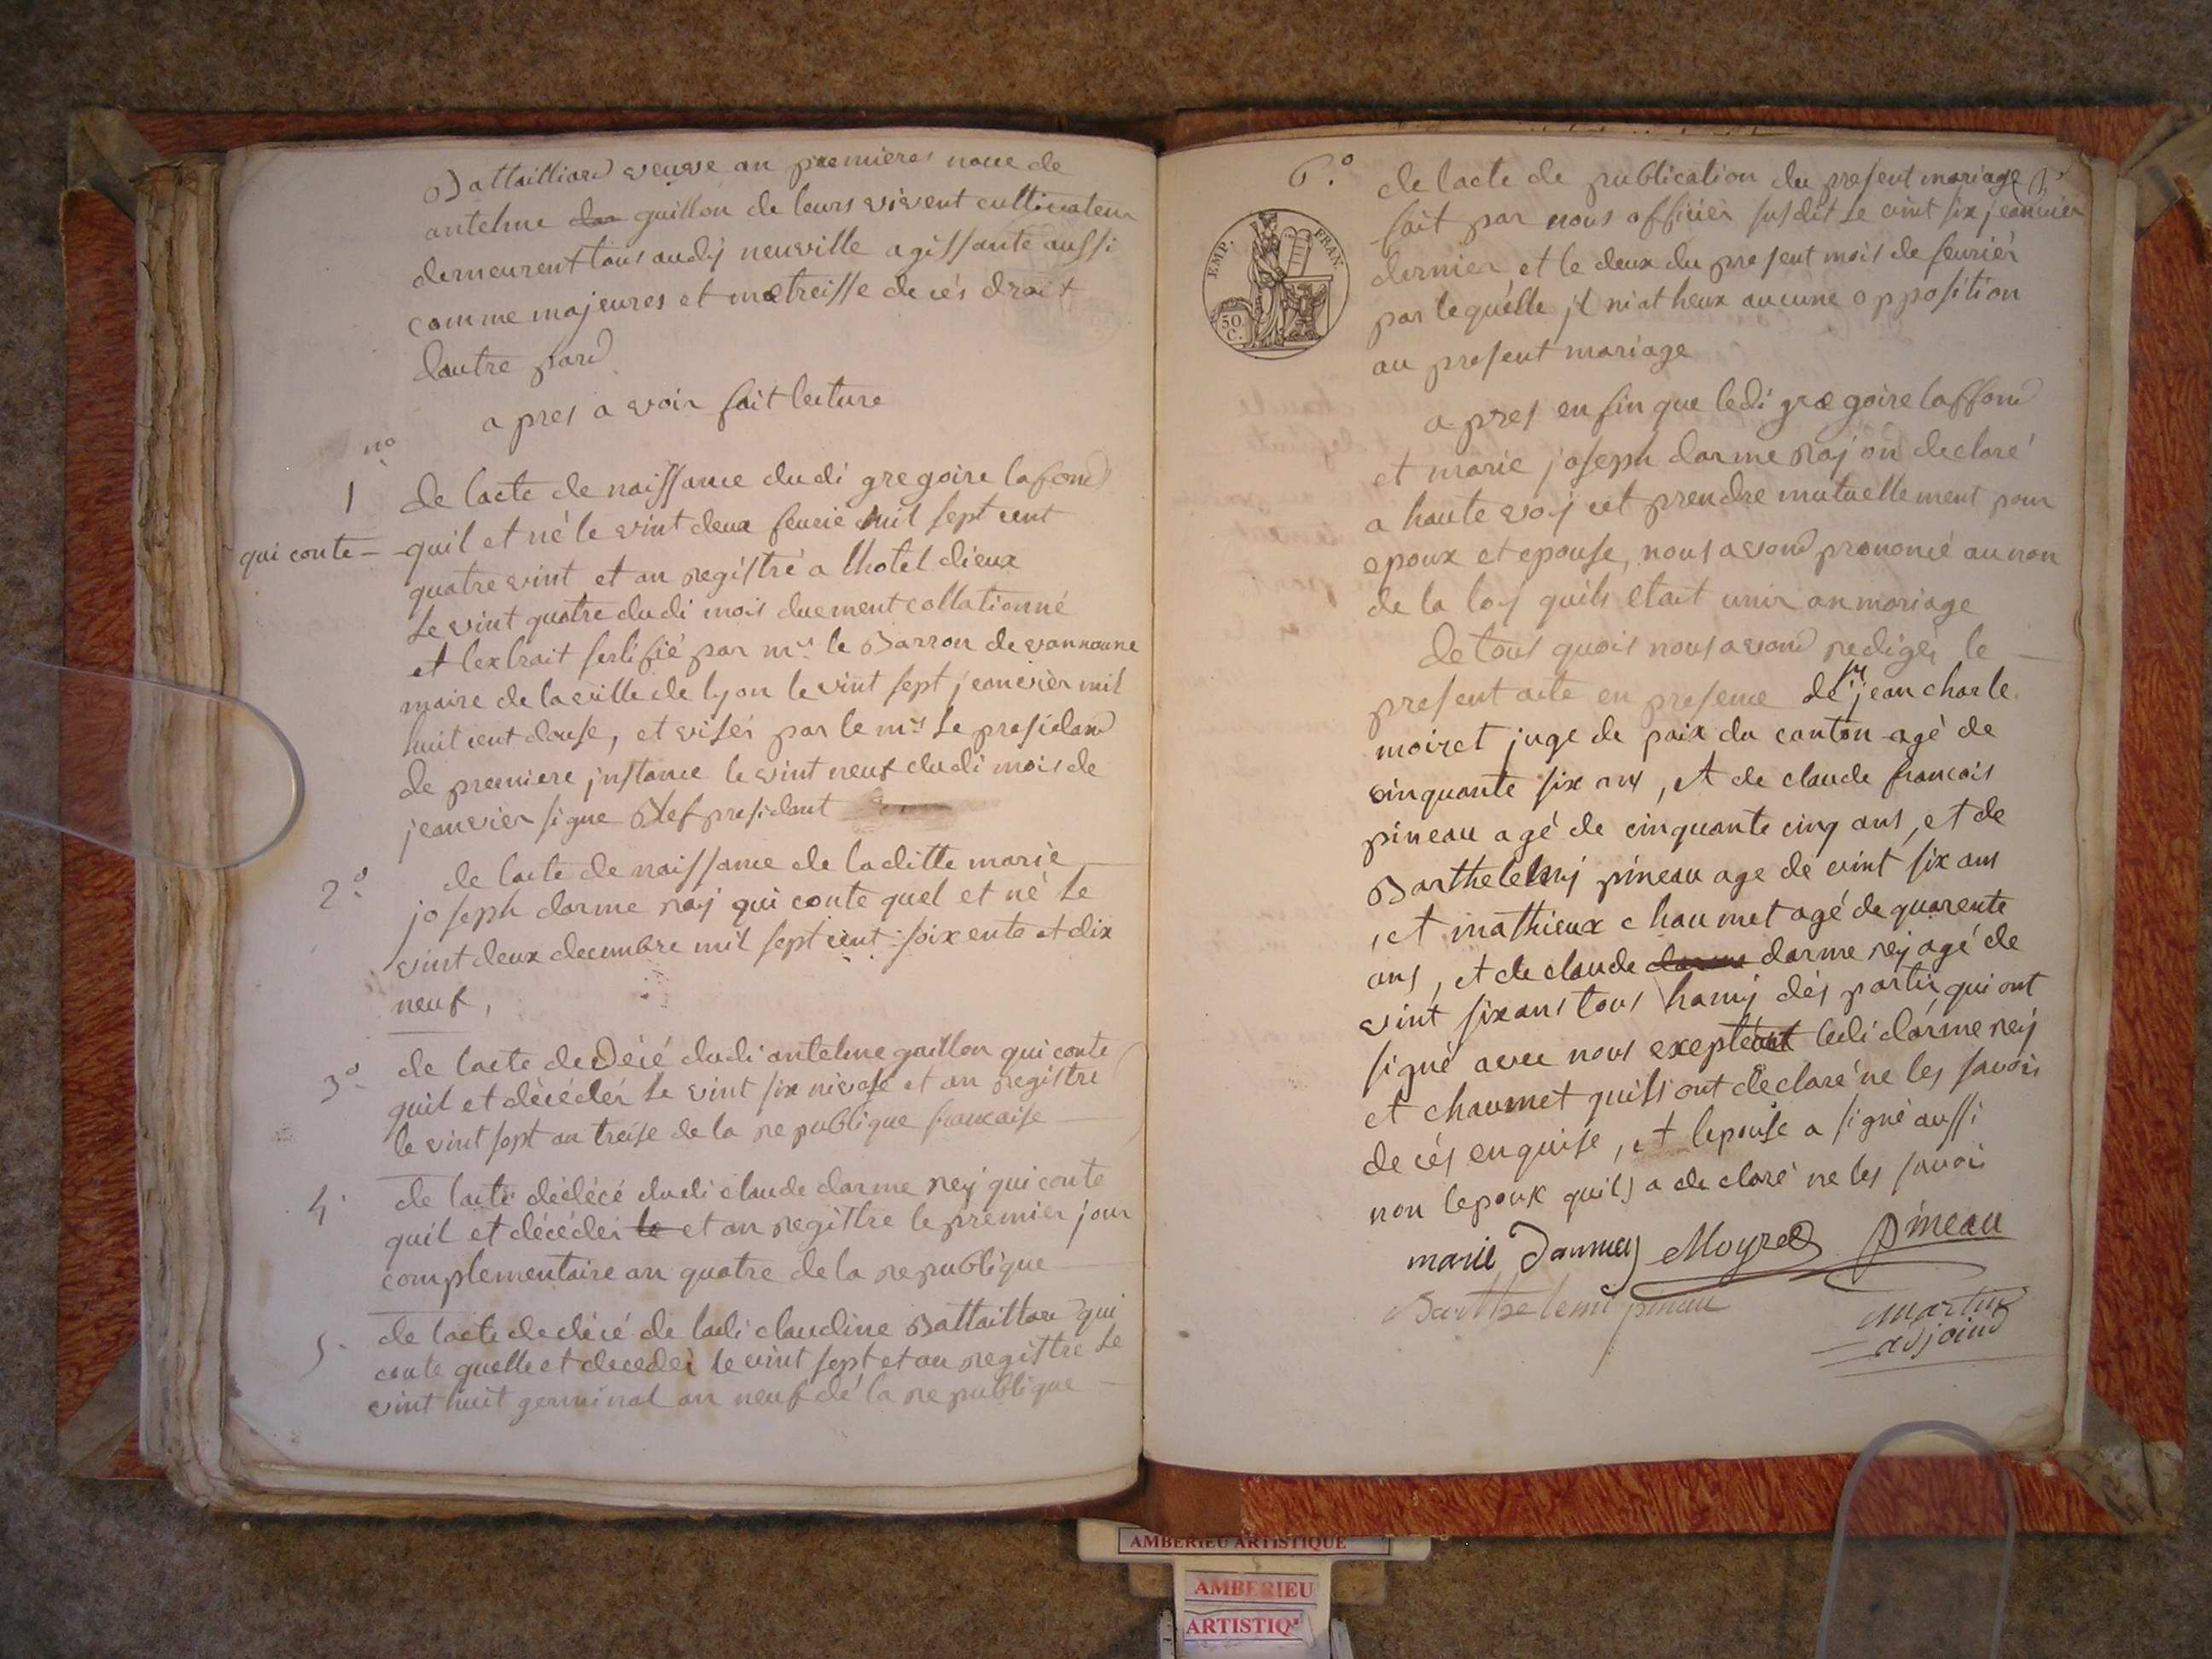 Battailliard veuve an premieres noue de
antelme dar guillon de leurs vivent cultivateur
demeurent tous audij neuville agissante aussi
comme majeures et maetreisse de cés droit
dautre pard
a pres a voir fait lecture
no
1 de lacte de naissance dudi gregoire lafond
qui conte — quil et né le vint deux feurié mil sept cent
quatre vint et an registré a lhotel dieux
le vint quatre dudi mois duement collationné
et lextrait sertifié par mr le Barron de
maire de la ville de lyon le vint sept jeanvièr mil
huit cent douse, et viséi par le mr le presidand
de premiere jnstance le vint neuf dudi mois de
jeanvier signe president
2º de lacte de naissance de laditte marie
joseph darme raj qui conte quel et né le
vint deux decembre mil sept cent soixente et dix
neuf,
3º de lacte de décé dudi antelme guillon qui conte
quil et décédéi le vint six nivose et an registré
le vint sept an treise de la republique francaise
4 de lacte dédécé dudi claude darme rej qui conte
quil et décédéi le et an registre le premier jour
complementaire an quatre de la republique
5 de lacte de décé de ladi claudine Battaillard qui
conte quelle et decedéi le vint sept et an registre le
vint huit germinal an neuf dé la republique
6º. de lacte de publication du present mariage
EMP. FRAN.
50 C.
fait par nous officièr susdit le vint six jeanvier
dernier et le deux du present mois de feurièr
par lequélle jl niat heux aucune opposition
au present mariage
a pres en fin que ledi græ goire laffond
et marie joseph darme raj on declaré
a haute voij cet prendre mutuellement pour
epoux et epouse, nous avond prononcé au non
de la loy quils etait unir an mariage
de tous quois nous avond redigéi le
present acte en presence de sr jean charle
moiret juge de paix du canton agé de
cinquante six ans, et de claude francois
pineau agé de cinquante cinq ans, et de
Barthelemij pineau age de vint six ans
, et mathieux chaumet agé de quarente
ans, et de claude darme darme rej agé de
vint six ans tous hamij dés partir, qui ont
signé avec nous exepté ledi darme rej
et chaumet quils ont declaré ne les savoir
de cés enquise, et lepouse a signé aussi
non lepoux quils a declaré ne les savoir
marie Moyret pineau
Barthelemi pineau
martin
adjoind
AMBERIEU ARTISTIQUE
AMBERIEU
ARTISTIQ